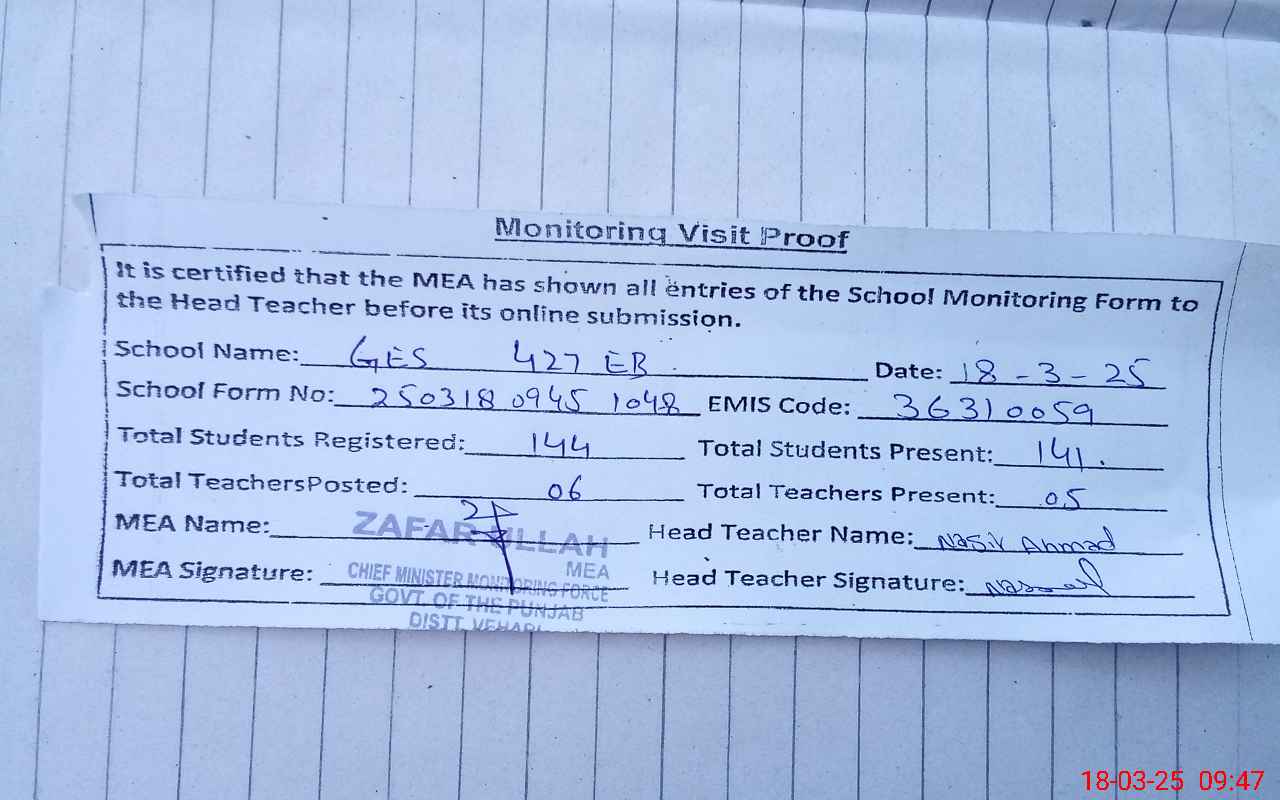 Monitoring Visit Proof
It is certified that the MEA has shown all entries of the School Monitoring Form to
the Head Teacher before its online submission.
School Name: GES 427 EB Date: 18-3-25
School Form No: 2503180945 1048 EMIS Code: 36310059
Total Students Registered: 144 Total Students Present: 141.
Total TeachersPosted: 06 Total Teachers Present: 05
MEA Name: ZAFAR ULLAH Head Teacher Name: Nasir Ahmad
MEA
MEA Signature: CHIEF MINISTER MONITORING FORCE Head Teacher Signature:
GOVT. OF THE PUNJAB
DISTT. VEHARI
18-03-25 09:47